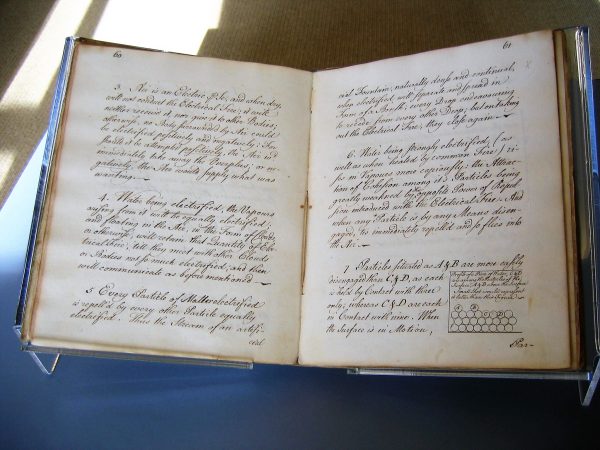 60
3. Air is an Electric Per Se, and when dry,
will not conduct the Electrical Fire; it will
neither receive it, nor give it to other Bodies;
otherwise, no Body surrounded by Air could
be electrified positively and negatively: For
should it be attempted positively, the Air would
immediately take away the Overplus; or ne-
gatively, the Air would supply what was
wanting.
4. Water being electrified, the Vapours
arising from it will be equally electrified;
and floating in the Air, in the Form of Clouds
or otherwise, will retain that Quantity of Elec-
trical Fire, till they meet with other Clouds
or Bodies not so much electrified, and then
will communicate as before mentioned.
5. Every Particle of Matter electrified
is repelled by every other Particle equally
electrified. Thus the Stream of an artifi-
cial
61
cial Fountain, naturally dense and continual,
when electrified will separate and spread in
Form of a Brush, every Drop endeavouring
to recede from every other Drop. But on taking
out the Electrical Fire, they close again.
6. Water being strongly electrified, (as
well as when heated by common Fire) ri-
ses in Vapours more copiously; the Attrac-
tion of Cohesion among its Particles being
greatly weakned by opposite Power of Repul-
sion introduced with the Electrical Fire. And
when any Particle is by any Means disen-
gaged, 'tis immediately repelled and so flies into
the Air.
7 Particles situated as A & B are more easily
disengaged than C & D, as each
is held by Contact with three
only, whereas C & D are each
in Contact with nine. When
the Surface is in Motion,
A B
C D
Par-